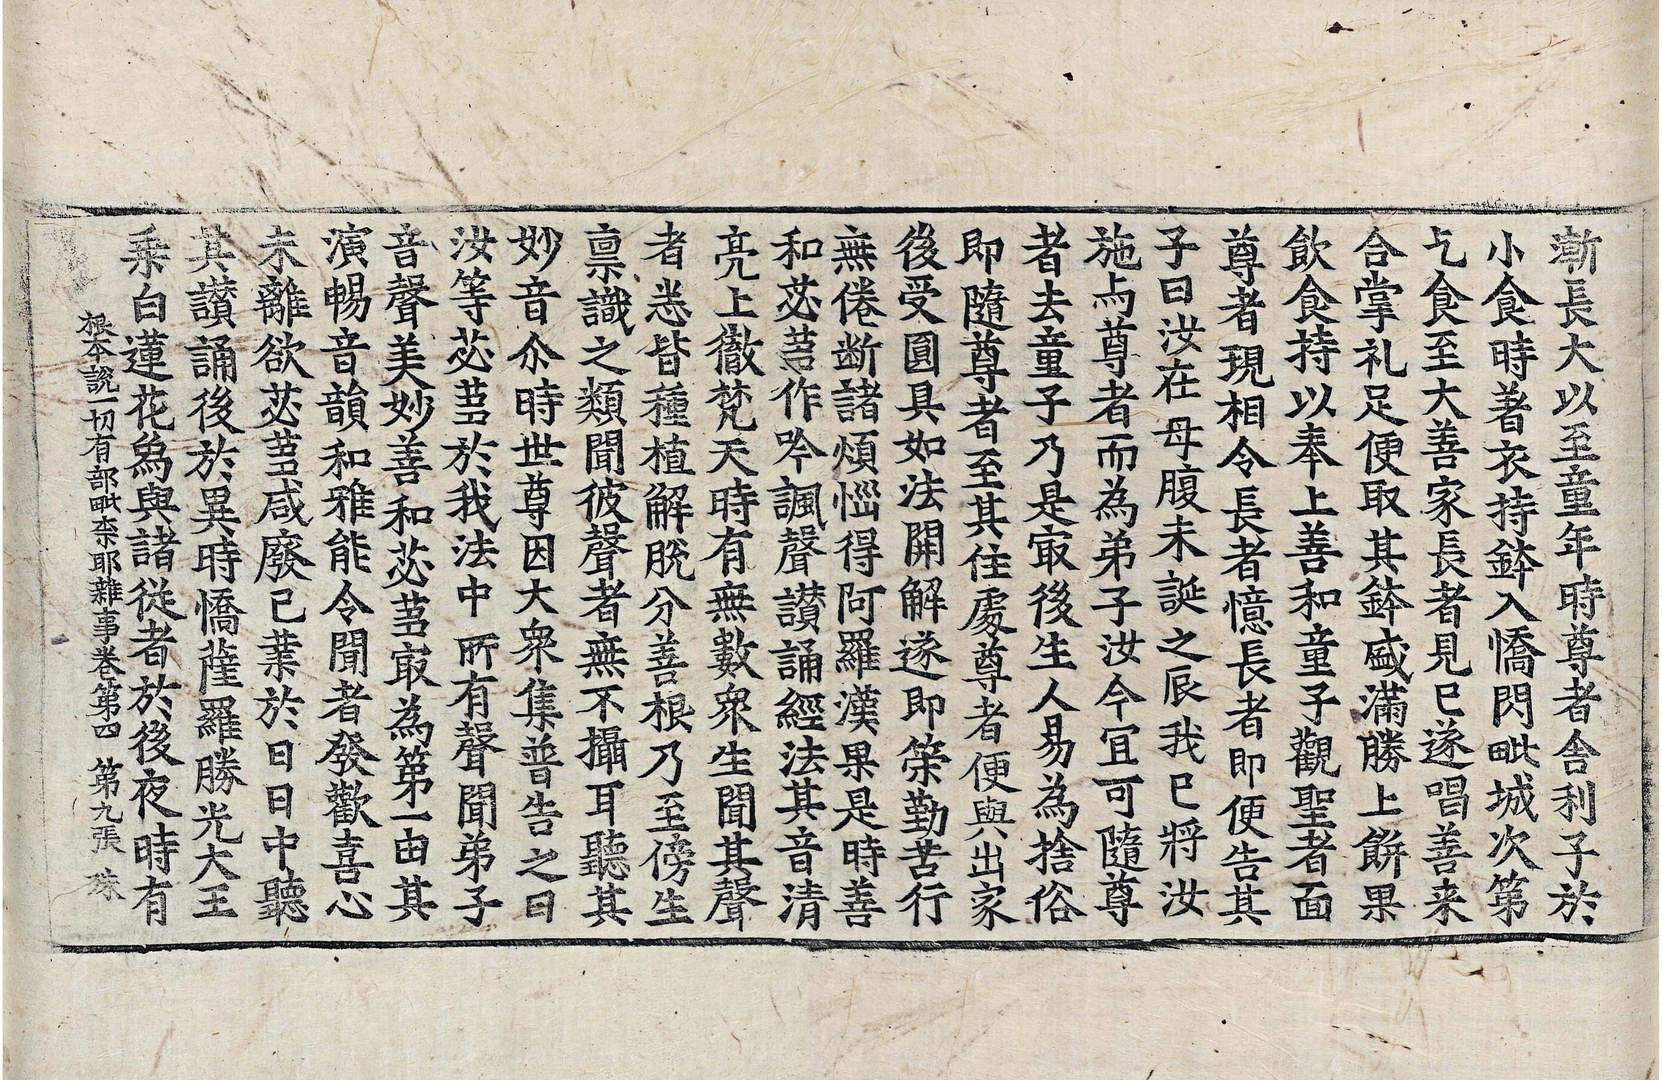 漸長大以至童年時尊者舎利子於
小食時著衣持鉢入憍閃毗城次第
乞食至大善家長者見已遂唱善来
合掌礼足便取其鉢盛滿勝上餅果
飲食持以奉上善和童子觀聖者面
尊者現相令長者憶長者即便告其
子曰汝在母腹未誕之辰我已將汝
施与尊者而為弟子汝今冝可隨尊
者去童子乃是㝡後生人易為捨俗
即隨尊者至其住處尊者便與出家
後受圓具如法開解遂即䇿勤苦行
無倦断諸煩惱得阿羅漢果是時善
和苾芻作吟諷聲讃誦經法其音清
亮上徹梵天時有無數衆生聞其聲
者悉皆種植解脫分善根乃至傍生
禀識之類聞彼聲者無不攝耳聽其
妙音尒時世尊因大衆集普告之曰
汝等苾芻於我法中所有聲聞弟子
音聲美妙善和苾芻㝡為第一由其
演暢音韻和雅能令聞者發歡喜心
未離欲苾芻咸廢己業於日日中聽
其讃誦後於異時憍薩羅勝光大王
乗白蓮花爲與諸從者於後夜時有
根本說一切有部毗柰耶雜事卷第四 第九張 珠